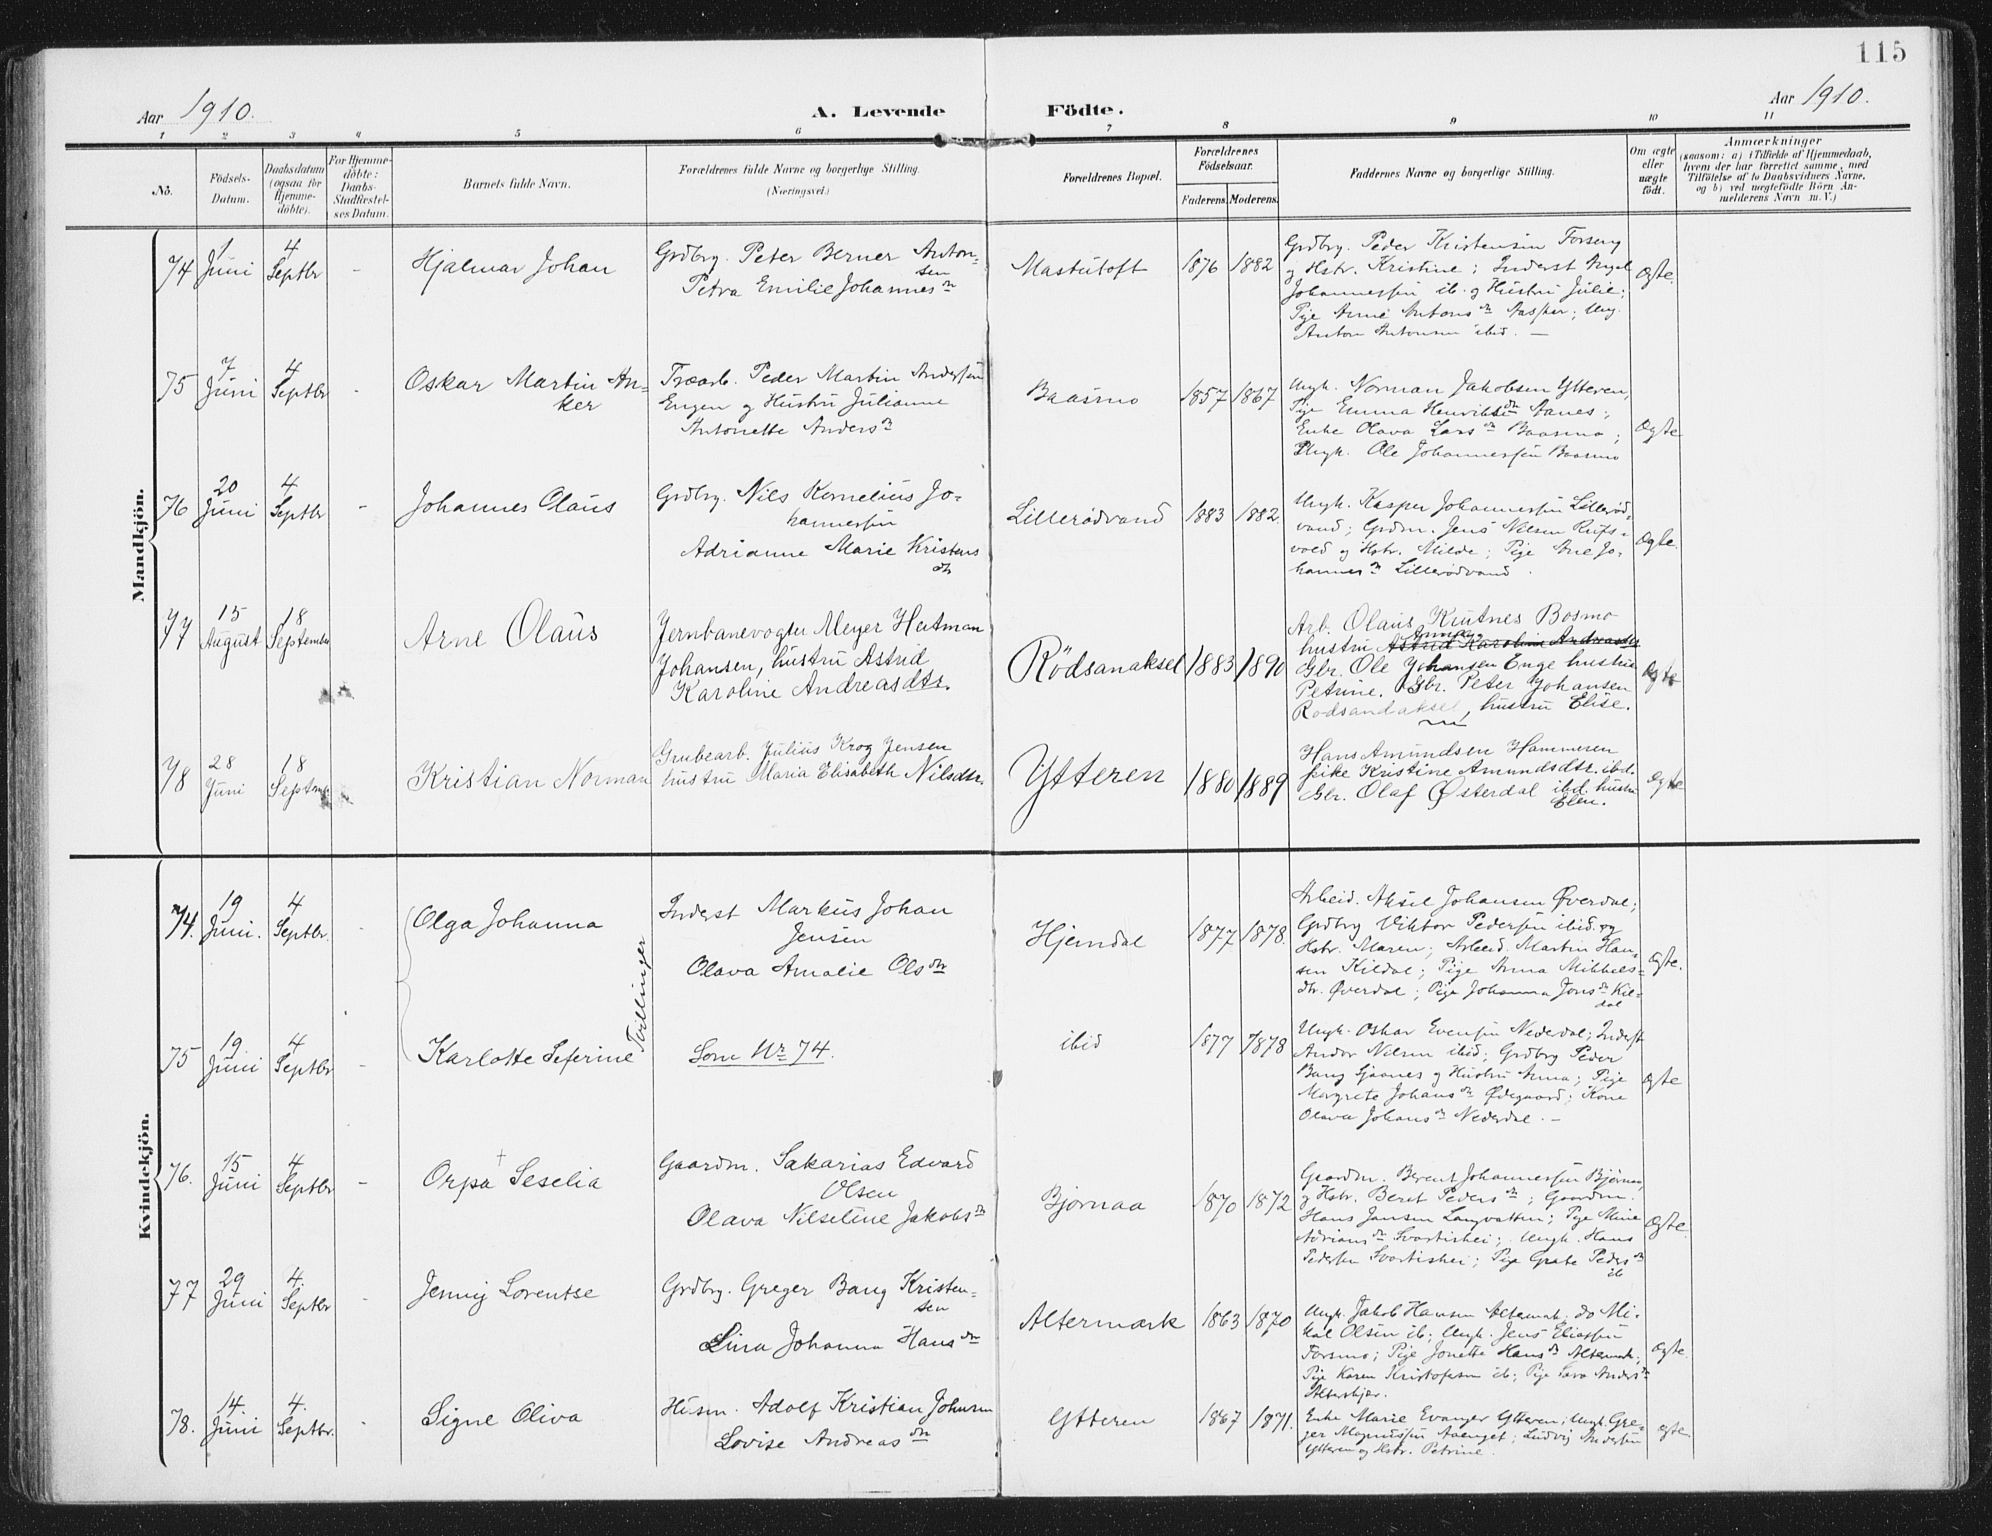 115
Aar 1910.
A. Levende Födte.
Aar 1910.
1 2 3 4 5 6 7 8 9 10 11
No.
Födsels-
Datum.
Daabsdatum
(ogsaa for
Hjemme-
döbte).
For Hjemme-
döbte:
Daabs-
Stadfæstel-
ses Datum.
Barnets fulde Navn.
Forældrenes fulde Navne og borgerlige Stilling.
(Næringsvei.)
Forældrenes Bopæl.
Forældrenes
Födselsaar.
Faderens. Moderens.
Faddernes Navne og borgerlige Stilling.
Om ægte
eller
uægte
födt.
Anmærkninger
(saasom: a) i Tilfælde af Hjemmedaab,
hvem der har forrettet samme, med
Tilföielse af to Daabsvidners Navne,
og b) ved uægtefödte Börn An-
melderens Navn m. V.)
Mandkjön.
74
1
Juni
4
Septbr
-
Hjalmar Johan
Grdbrg. Peter Berner Anton-
sen
Petra Emilie Johannes dtr
Mastutoft
1876 1882
Grdbrg. Peder Kristensen Forseng
og Hstr. Kristine; Inderst
Johannessen ib. og Hustru Julie;
Pige Anne Antons dtr ; Ung.
Anton Antonsen ibid. —
Ægte.
75
7
Juni
4
Septbr
-
Oskar Martin An-
ker
Træarb. Peder Martin Andersen
Engen og Hustru Julianne
Antonette Anders dtr
Baasmo
1857 1867
Ungk. Norman Jakobsen Ytteren,
Pige Emma Henriks dtr Aanes;
Enke Olava Lars dtr Baasmo;
Ungk. Ole Johannessen Baasmo
Ægte
76
20
Juni
4
Septbr
-
Johannes Olaus
Grdbrg. Nils Kornelius Jo-
hannessen
Adrianne Marie Kristens
dtr
Lillerødvand
1883 1882.
Ungk. Kasper Johannessen Lillerød-
vand; Grdm. Jens Nilsen
vold og Hstr. Milde; Pige Ane Jo-
hannes dtr Lillerødvand.
Ægte.
77
15
August
18
September
Arne Olaus
Jernbanevogter Meyer Hutman
Johansen, hustru Astrid
Karoline Andreasdtr.
Rödsanaksel
1883 1890
Arb. Olaus Knutnes Bosmo
Anna
hustru Astrid Karoline Andreasdtr
Gbr. Ole Johansen Enge hustru
Petrine. Gbr. Peter Johansen
Rodsandaksel, hustru Elise.
Ægte
78
28
Juni
18
Septmb
Kristian Norman
Grubearb. Julius Krog Jensen
hustru Maria Elisabeth Nilsdtr.
Ytteren
1880 1889
Hans Amundsen Hammeren
pike Kristine Amundsdtr. ibd.
Gbr. Olaf Østerdal ibd. hustru
Elen.
Ægte
Kvindekjön.
74.
19
Juni.
4
Septbr.
-
Olga Johanna
Tvillinger
Inderst Markus Johan
Jensen
Olava Amalie Ols dtr
Hjemdal
1877 1878.
Arbeid. Aksel Johansen Øverdal;
Grdbrg Viktor Pedersen ibid. og
Hstr. Maren; Arbeid. Martin Han-
sen Kildal; Pige Anna Mikkels-
dtr. Øverdal; Pige Johanna Jons dtr Kil-
dal
Ægte.
75
19
Juni
4
Septbr
-
Karlotte Seferine
Som Nr 74.
ibid
1877 1878
Ungk. Oskar Evensen Nederdal; Inderst
Andor Nilsen ibid; Grdbrg Peder
Bang Sjaanes og Hustru Anna; Pige
Margrete Johans dtr Ødegaard; Kone
Olava Johans dtr Nederdal. —
Ægte
76.
15
Juni
4
Septbr
-
+
Orpa Seselia
Gaardm. Sakarias Edvard
Olsen
Olava Nilseline Jakobs dtr
Bjørnaa
1870 1872
Gaardm. Berent Johannessen Bjørnaa
og Hstr. Beret Peders dtr; Gaardm.
Hans Jansen Langvatten; Pige Mina
Adrians dtr Svartishei; Ungk. Hans
Pedersen Svartishei; Pige Grete Peders dtr
ib
Ægte.
77
29
Juni
4.
Septbr
-
Jenny Lorentse
Grdbrg. Greger Bang Kristen-
sen
Lina Johanna Hans dtr
Altermark
1863 1870
Ungk. Jakob Hansen Altermark; do Mi-
kal Olsen ib; Ungk. Jens Eliassen
Forsmo; Pige Jonette Hans dtr Altermark;
Pige Karen Kristofersen ib; Pige Lava Anders dtr
Altersbjør.
Ægte.
78.
14.
Juni
4.
Septbr.
-
Signe Oliva
Husm. Adolf Kristian Johnsen
Lovise Andreas dtr
Ytteren
1867 1871.
Enke Marie Evanger Ytteren; Ungk. Gre-
ger Magnussen Aaenget; Ludvig Andersen
Ytteren og Hstr. Petrine.
Ægte